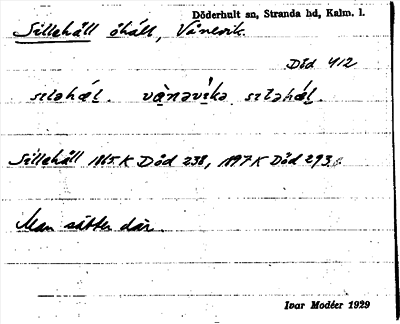 Döderhult sn, Stranda hd, Kalm. l.
Sillehäll öhäll, Vånevik.
Död 412
sıləhǽl. vånəvikə sıləhǽl.
Sillehäll 1865 K Död 238, 1897 K Död 293.
Man sätter där.
Ivar Modéer 1929